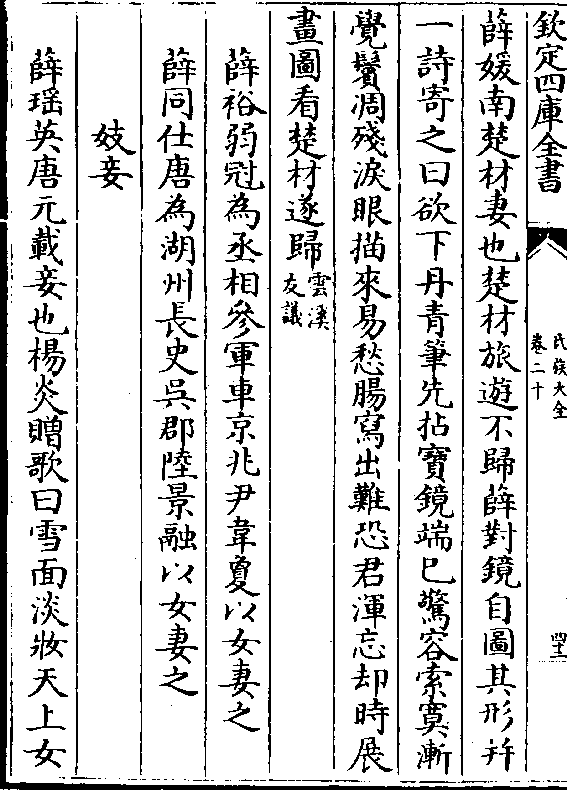 欽定四庫全書
氏族大全
卷二十
四十二
薛媛南楚材妻也楚材旅遊不歸薛對鏡自圖其形幷
一詩寄之曰欲下丹青筆先拈寶鏡端已驚容索寞漸
覺鬢凋殘淚眼描來易愁腸寫出難恐君渾忘却時展
畫圖看楚材遂歸雲溪友議
薛裕弱冠為丞相參軍車京兆尹韋夐以女妻之
薛同仕唐為湖州長史吳郡陸景融以女妻之
妓妾
薛瑶英唐元載妾也楊炎贈歌曰雪面淡妝天上女